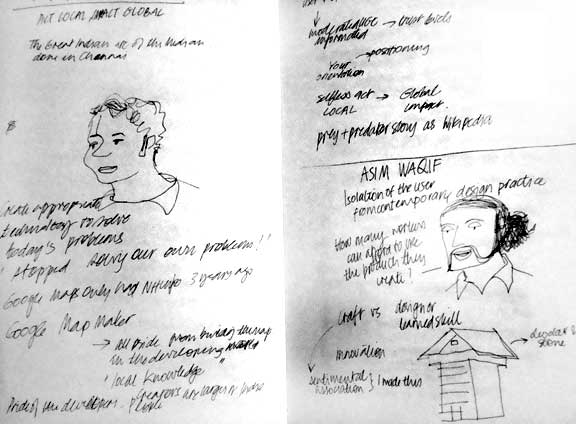 ACT LOCAL IMPACT GLOBAL
The Great Indian
done in Chennai
8
Create appropriate
technology to solve
today's problems
"stopped solving our own problems!"
Google Maps only had NH info 3 years ago
Google Map Maker
→ pride from building the map
in the developing
"local knowledge"
Pride of the developers
people
moderated/UGC → trust levels
Your → positioning
orientation
selfless act → Global
LOCAL impact.
prey + predator story as wikipedia
ASIM WAQIF
Isolation of the user
from contemporary design practice
How many workers
can afford to use
the products they
create?
craft vs designer
learned skill
innovation
sentimental
association } I made this
stone